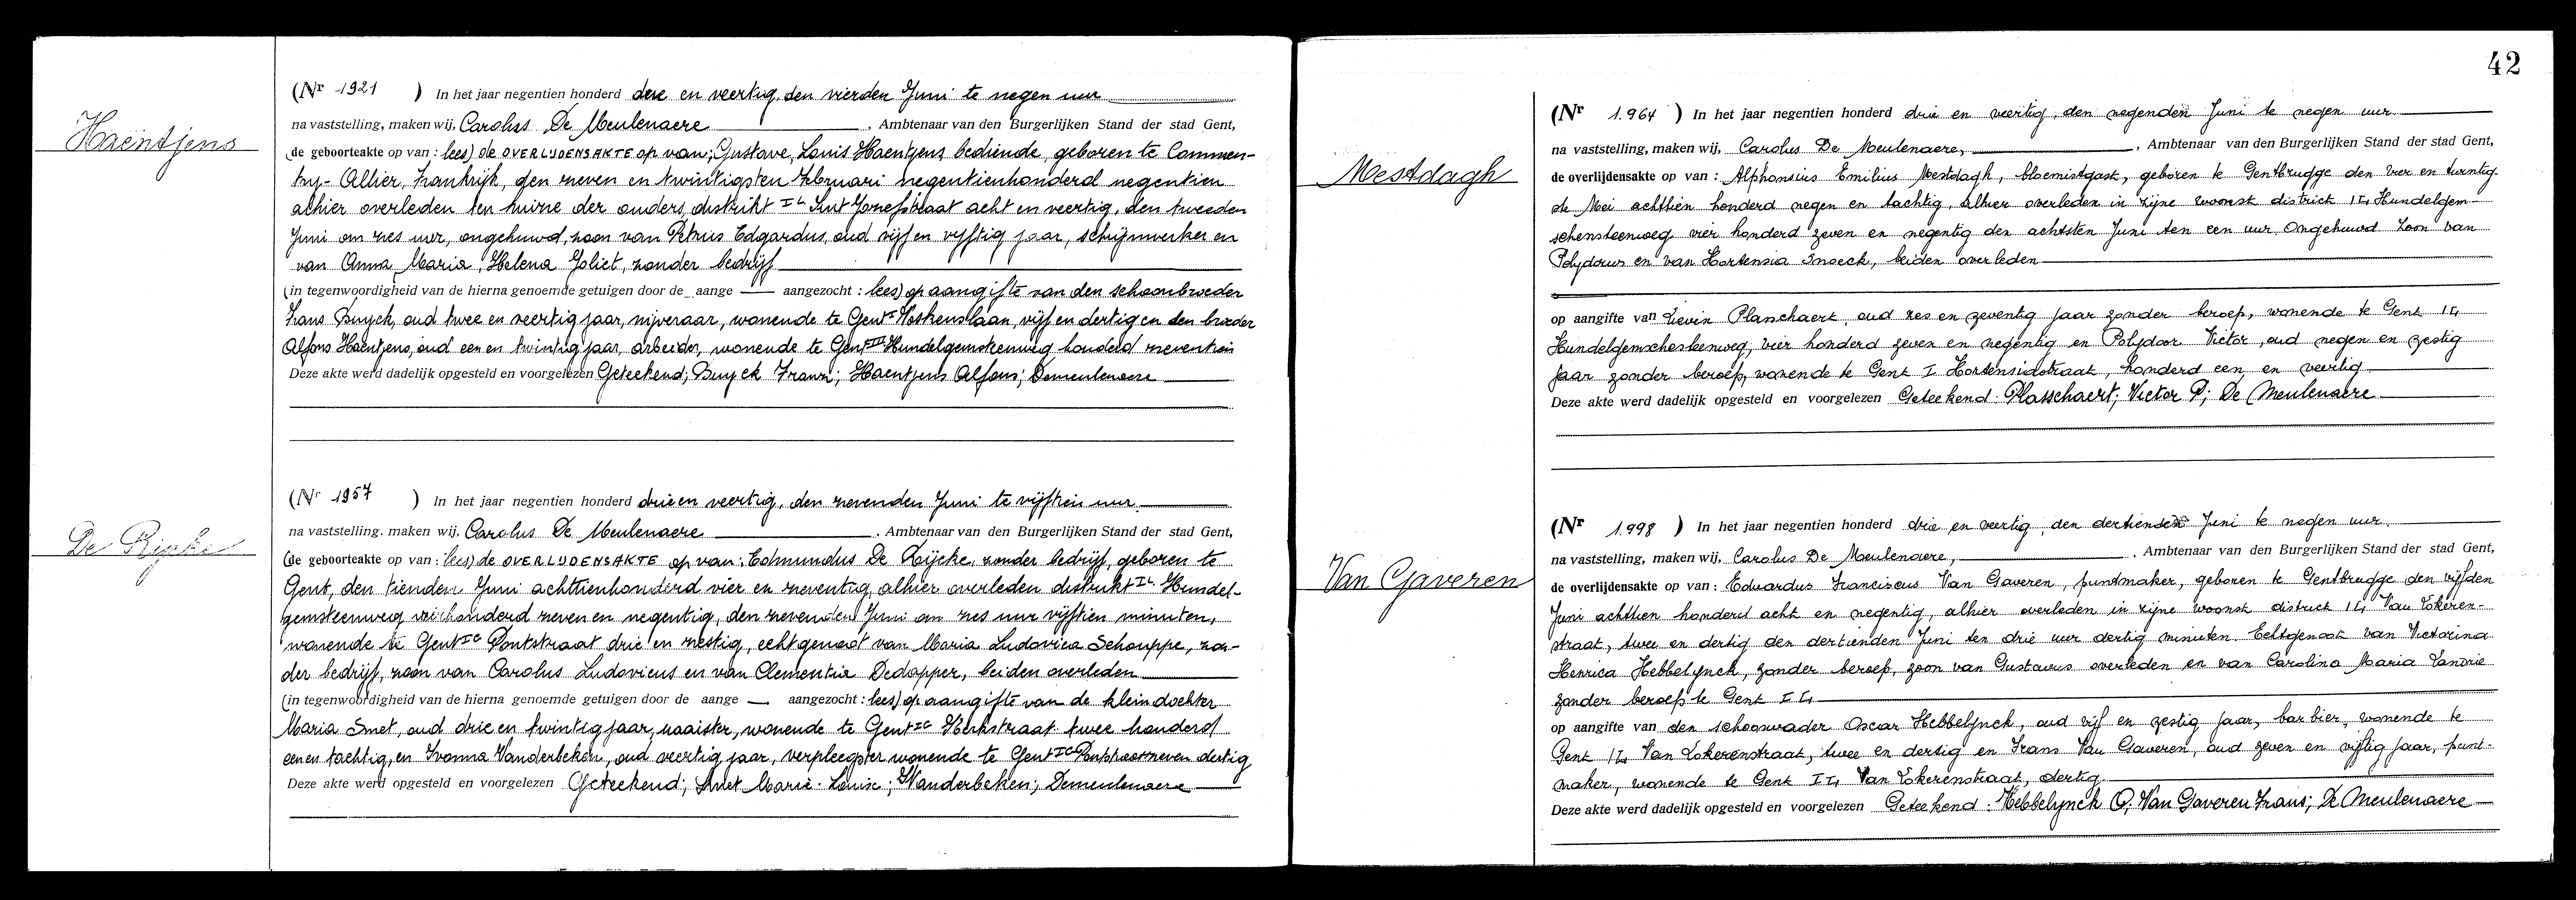 Haentjens
(Nr 1921 ) In het jaar negentien honderd drie en veertig, den vierden Juni te negen uur
na vaststelling, maken wij, Carolus De Meulenaere, Ambtenaar van den Burgerlijken Stand der stad Gent,
(de geboorteakte op van : lees) de OVERLIJDENSAKTE op van; Gustave, Louis Haentjens, bediende, geboren te Commen-
try-Allier, Frankrijk, den zeven en twintigsten Februari negentienhonderd negentien
alhier overleden ten huize der ouders, distrikt IL Sint Jozefstraat acht en veertig, den tweeden
Juni om zes uur, ongehuwd, zoon van Petrus Edgardus, oud vijf en vijftig jaar, schrijnwerker en
van Anna, Maria, Helena Joliet, zonder bedrijf
(in tegenwoordigheid van de hierna genoemde getuigen door de aange — aangezocht : lees) op aangifte van den schoonbroeder
Frans Buyck, oud twee en veertig jaar, nijveraar, wonende te Gent I Voskenslaan, vijf en dertig en den broeder
Alfons Haentjens, oud een en twintig jaar, arbeider, wonende te Gent III Hundelgemsteenweg honderd zeventien
Deze akte werd dadelijk opgesteld en voorgelezen Geteekend; Buyck Frans; Haentjens Alfons; Demeulenaere
De Rijcke
(Nr 1957 ) In het jaar negentien honderd drie en veertig, den zevenden Juni te vijftien uur
na vaststelling, maken wij, Carolus De Meulenaere, Ambtenaar van den Burgerlijken Stand der stad Gent,
(de geboorteakte op van : lees) de OVERLIJDENSAKTE op van; Edmundus De Rijcke, zonder bedrijf, geboren te
Gent, den tienden Juni achttienhonderd vier en zeventig, alhier overleden distrikt IL Hundel-
gemsteenweg vierhonderd zeven en negentig, den zevenden Juni om zes uur vijftien minuten,
wonende te Gent IC Pontstraat drie en zestig, echtgenoot van Maria Ludovica Schouppe, zon-
der bedrijf, zoon van Carolus Ludovicus en van Clementia Dedapper, beiden overleden
(in tegenwoordigheid van de hierna genoemde getuigen door de aange — aangezocht : lees) op aangifte van de kleindochter
Maria Smet, oud drie en twintig jaar, naaister, wonende te Gent IC Kerkstraat twee honderd
een en tachtig, en Ivonna Vanderbeken, oud veertig jaar, verpleegster wonende te Gent IC Pontstraat zeven dertig
Deze akte werd opgesteld en voorgelezen Geteekend; Smet Marie-Louise; Vanderbeken; Demeulenaere
42
Mestdagh
(Nr 1.964 ) In het jaar negentien honderd drie en veertig, den negenden Juni te negen uur
na vaststelling, maken wij, Carolus De Meulenaere, Ambtenaar van den Burgerlijken Stand der stad Gent,
de overlijdensakte op van : Alphonsius Emilius Mestdagh, bloemistgast, geboren te Gentbrugge den vier en twintig-
ste Mei achttien honderd negen en tachtig, alhier overleden in zijne woonst district IL, Hundelgem-
schensteenweg vier honderd zeven en negentig den achtsten Juni ten een uur. Ongehuwd. Zoon van
Polydorus en van Hortensia Snoeck, beiden overleden
op aangifte van Lievin Plasschaert, oud zes en zeventig jaar zonder beroep, wonende te Gent IL,
Hundelgemschesteenweg, vier honderd zeven en negentig en Polydoor Victor, oud negen en zestig
jaar zonder beroep, wonende te Gent I Hortensiastraat, honderd een en veertig
Deze akte werd dadelijk opgesteld en voorgelezen Geteekend: Plasschaert; Victor P; De Meulenaere
Van Gaveren
(Nr 1.998 ) In het jaar negentien honderd drie en veertig, den dertienden Juni te negen uur
na vaststelling, maken wij, Carolus De Meulenaere, Ambtenaar van den Burgerlijken Stand der stad Gent,
de overlijdensakte op van : Eduardus Franciscus Van Gaveren, puntmaker, geboren te Gentbrugge den vijfden
Juni achttien honderd acht en negentig, alhier overleden in zijne woonst district IL, Van Eokeren-
straat, twee en dertig den dertienden Juni ten drie uur dertig minuten. Echtgenoot van Victorina
Henrica Hebbelynck, zonder beroep, zoon van Gustavus overleden en van Carolina Maria Landrie
zonder beroep te Gent IL,
op aangifte van den schoonvader Oscar Hebbelynck, oud vijf en zestig jaar, barbier, wonende te
Gent IL, Van Eokerenstraat, twee en dertig en Frans Van Gaveren, oud zeven en vijftig jaar, punt-
maker, wonende te Gent IL, Van Eokerenstraat, dertig.
Deze akte werd dadelijk opgesteld en voorgelezen Geteekend: Hebbelynck O; Van Gaveren Frans; De Meulenaere